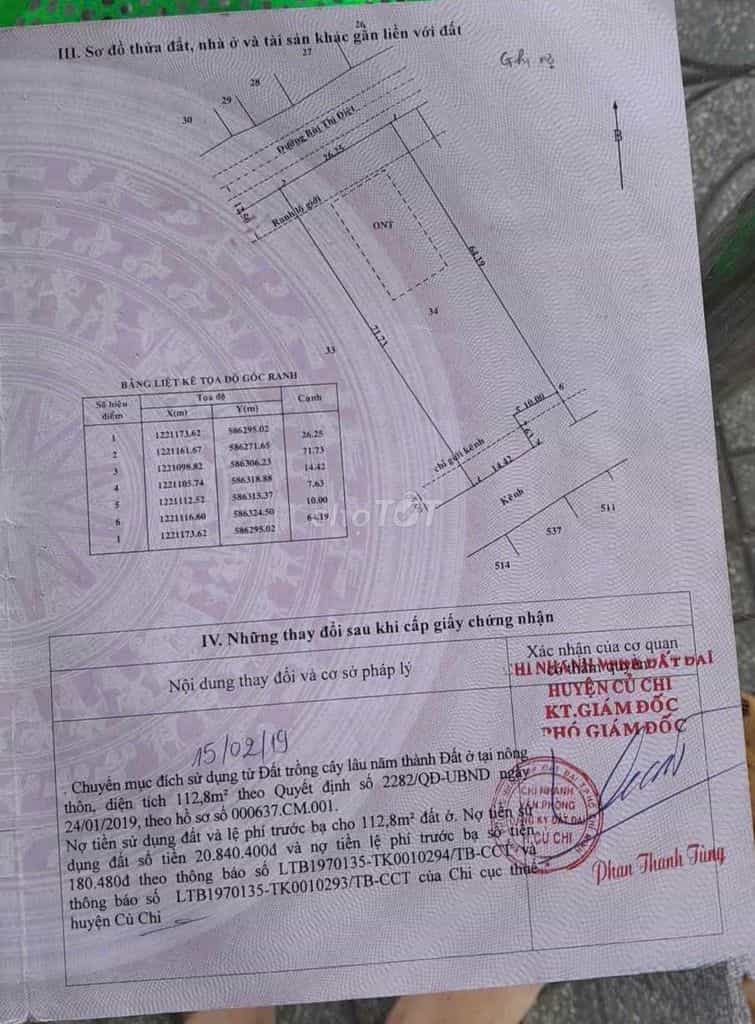 III. Sơ đồ thửa đất, nhà ở và tài sản khác gắn liền với đất
Ghi nợ
26
27
28
29
30
B
Đường Bùi Thị Điệt
26.25
1
2
14.50
Ranh lộ giới
ONT
64.19
34
71.73
33
6
10.00
5
7.63
chỉ giới kênh
14.42
Kênh
511
537
514
BẢNG LIỆT KÊ TỌA ĐỘ GÓC RANH
Số hiệu điểm Tọa độ Cạnh
X(m) Y(m)
1 1221173.62 586295.02
26.25
2 1221161.67 586271.65
71.73
3 1221098.82 586306.23
14.42
4 1221105.74 586318.88
7.63
5 1221112.52 586315.37
10.00
6 1221116.60 586324.50
64.19
1 1221173.62 586295.02
chợTỐT
IV. Những thay đổi sau khi cấp giấy chứng nhận
Nội dung thay đổi và cơ sở pháp lý
Xác nhận của cơ quan
có thẩm quyền
15/02/19
. Chuyển mục đích sử dụng từ Đất trồng cây lâu năm thành Đất ở tại nông
thôn, diện tích 112,8m² theo Quyết định số 2282/QĐ-UBND ngày
24/01/2019, theo hồ sơ số 000637.CM.001.
Nợ tiền sử dụng đất và lệ phí trước bạ cho 112,8m² đất ở. Nợ tiền sử
dụng đất số tiền 20.840.400đ và nợ tiền lệ phí trước bạ số tiền
180.480đ theo thông báo số LTB1970135-TK0010294/TB-CCT và
thông báo số LTB1970135-TK0010293/TB-CCT của Chi cục thuế
huyện Củ Chi
CHI NHÁNH VPĐK ĐẤT ĐAI
HUYỆN CỦ CHI
KT.GIÁM ĐỐC
PHÓ GIÁM ĐỐC
CHI NHÁNH
VĂN PHÒNG
ĐĂNG KÝ ĐẤT ĐAI
CỦ CHI
Phan Thanh Tùng